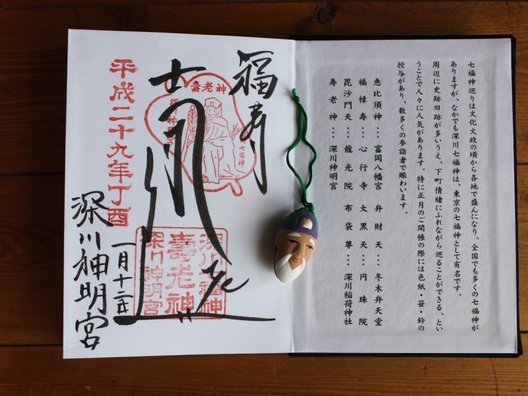 七福神巡りは文化文政の頃から各地で盛んになり、全国でも多くの七福神が
ありますが、なかでも深川七福神は、東京の七福神として有名です。
周辺に史跡旧跡が多いうえ、下町情緒にふれながら巡ることができる、とい
うことで人々に人気があります。特に正月のご開帳の際には色紙・笹・鈴の
授与があり、数多くの参詣者で賑わいます。
恵比須神…富岡八幡宮 弁財天…冬木弁天堂
福禄寿…心行寺 大黒天…円珠院
毘沙門天…龍光院 布袋尊…深川稲荷神社
寿老神…深川神明宮
福寿
壽老神
深川七福神
壽老神
深川神明宮
平成二十九年丁酉
一月十二日
深川神明宮